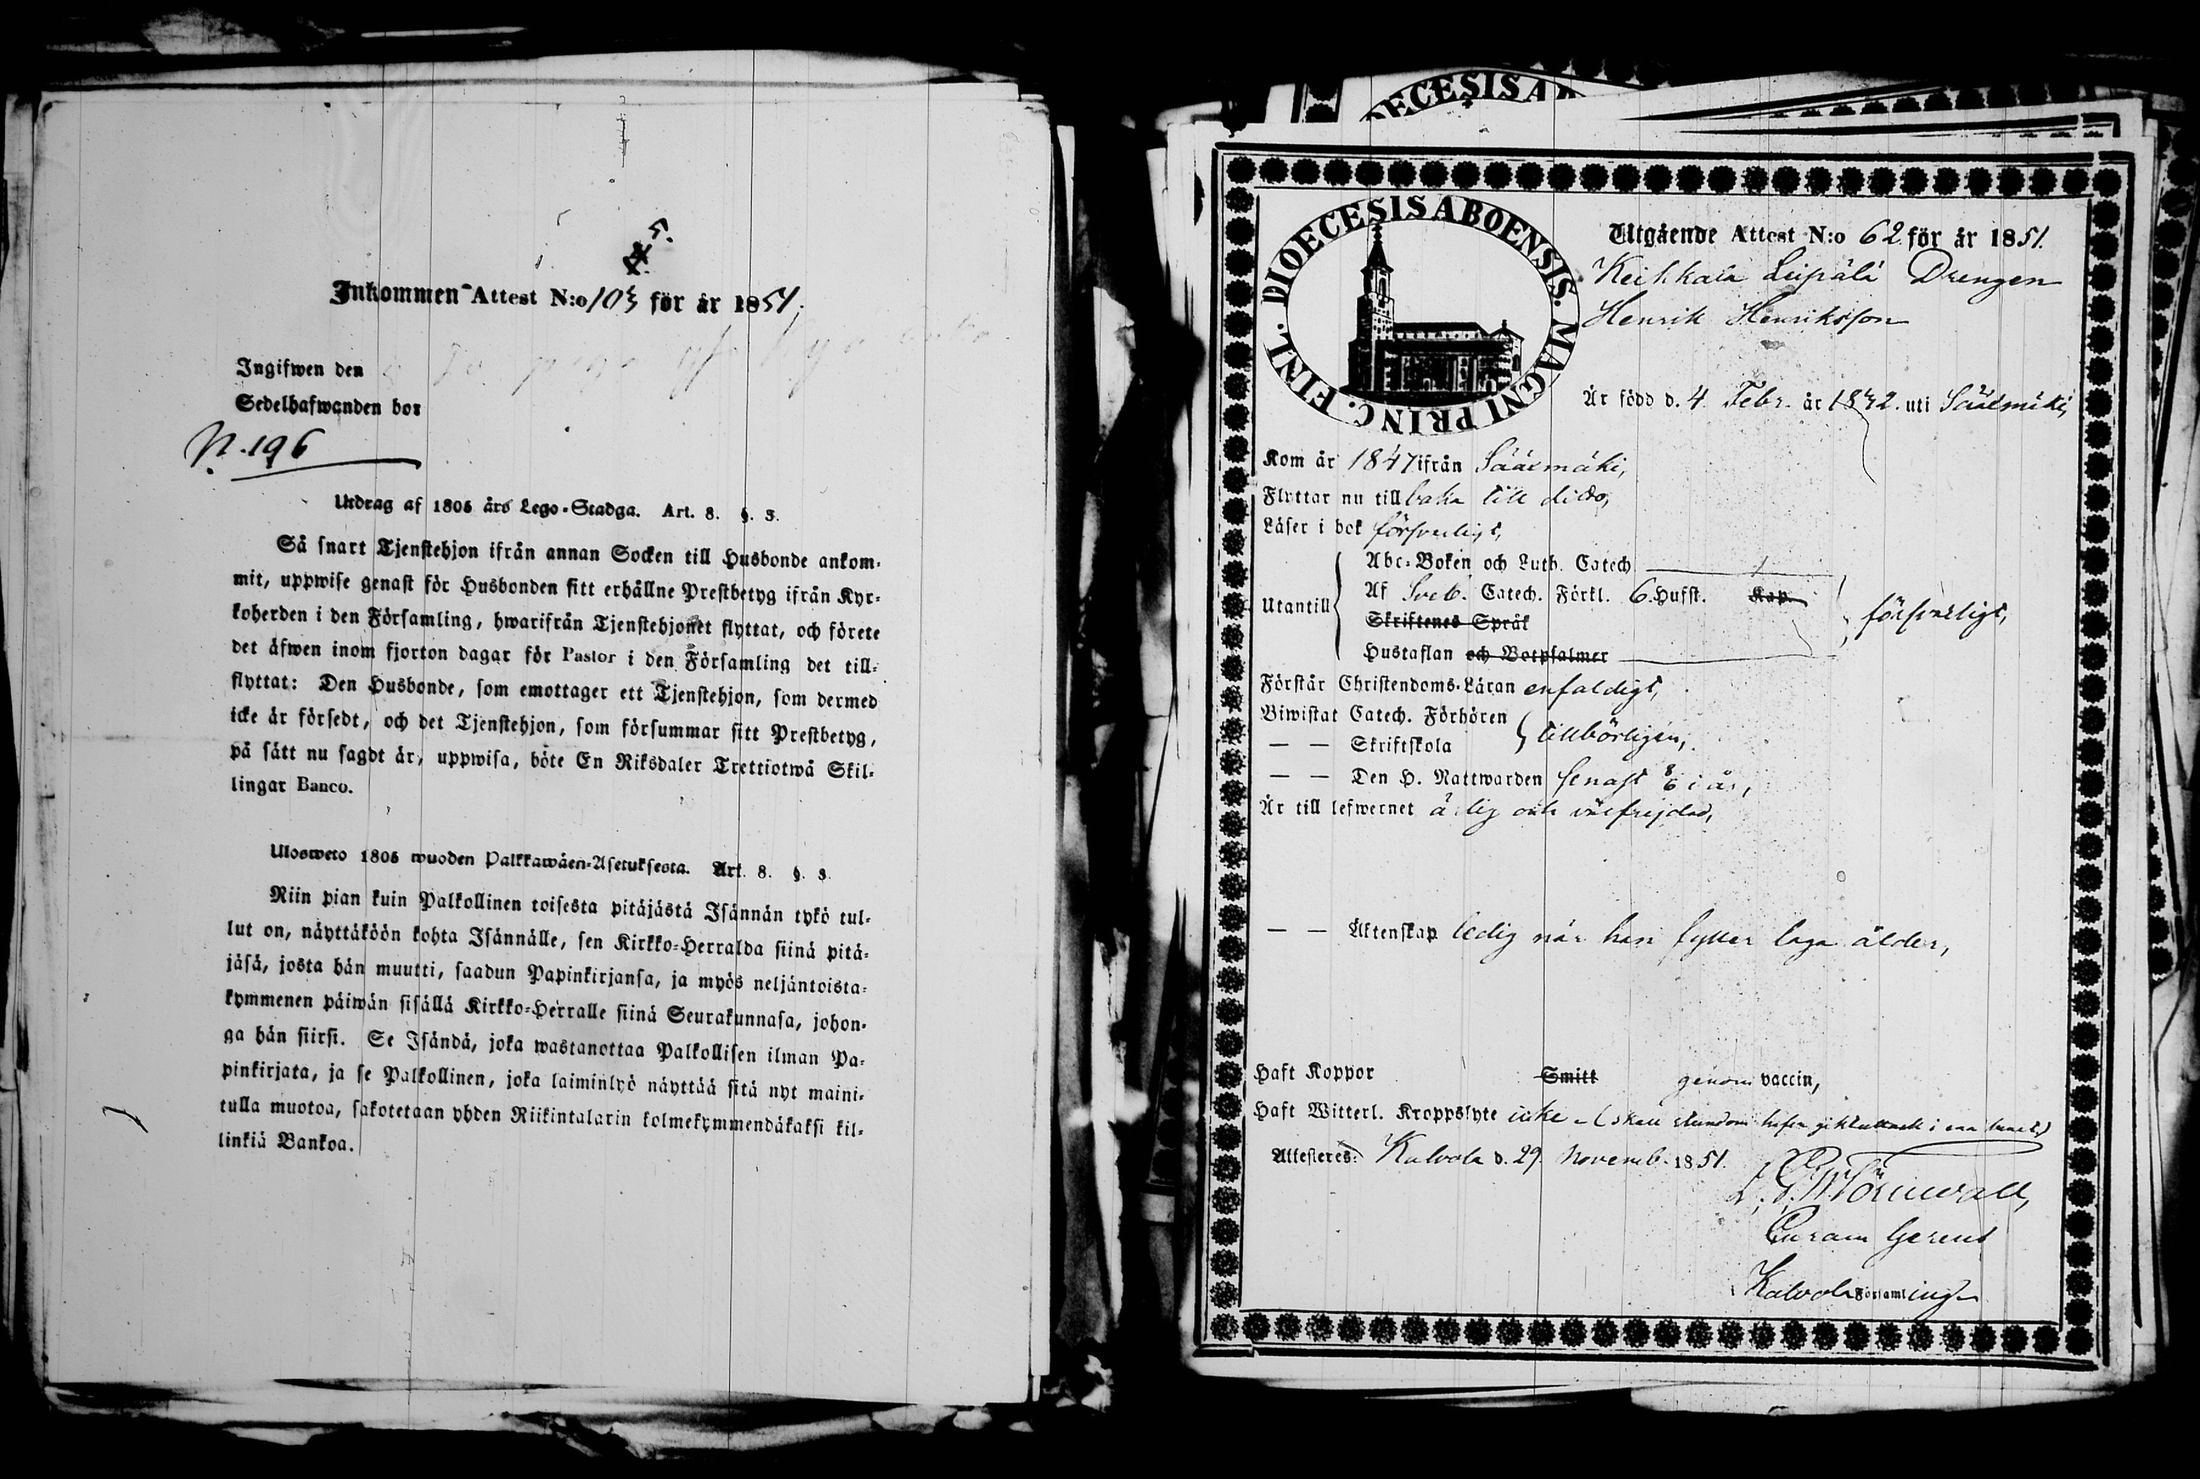 5.
Inkommen Attest N:o 103 för år 1851.
Ingifwen den
Sedelhafwanden bor
N. 196
Utdrag af 1805 års Lego-Stadga. Art. 8. §. 3.
Så snart Tjenstehjon ifrån annan Socken till Husbonde ankom-
mit, uppwise genast för Husbonden sitt erhållne Prestbetyg ifrån Kyr-
koherden i den Församling, hwarifrån Tjenstehjonet flyttat, och förete
det äfwen inom fjorton dagar för Pastor i den Församling det till-
flyttat: Den Husbonde, som emottager ett Tjenstehjon, som dermed
icke är försedt, och det Tjenstehjon, som försummar sitt Prestbetyg,
på sätt nu sagdt är, uppwisa, böte En Riksdaler Trettiotwå Skil-
lingar Banco.
Ulosweto 1805 wuoden Palkkawäen-Asetuksesta. Art. 8. §. 3.
Niin pian kuin Palkollinen toisesta pitäjästä Isännän tykö tul-
lut on, näyttäköön kohta Isännälle, sen Kirkko-Herralda siinä pitä-
jäsä, josta hän muutti, saadun Papinkirjansa, ja myös neljäntoista-
kymmenen päiwän sisällä Kirkko-Herralle siinä Seurakunnasa, johon-
ga hän siirsi. Se Isändä, joka wastanottaa Palkollisen ilman Pa-
pinkirjata, ja se Palkollinen, joka laiminlyö näyttää sitä nyt maini-
tulla muotoa, sakotetaan yhden Riikintalarin kolmekymmendäkaksi kil-
linkiä Bankoa.
DIOECESIS A
DIOECESIS ABOENSIS. MAGNI PRINC. FINL.
Utgående Attest N:o 62 för år 1851.
Keikkala Leipälä Drengen
Henrik Henriksson
Är född d. 4 Febr. år 1832. uti Sääxmäki,
Kom år 1847 ifrån Sääxmäki,
Flyttar nu till baka till dido,
Läser i bok försvarligt,
Utantill
Abc-Boken och Luth. Catech.
Af Sveb. Catech. Förkl. 6. Hufst. Kap.
Skriftenes Språk
försvarligt,
Hustaflan och Botpsalmer
Förstår Christendoms-Läran enfaldigt,
Biwistat Catech. Förhören
— — Skriftskola
tillbörligen,
— — Den H. Nattwarden senast 8/6 i år,
Är till lefwernet ärlig och välfrejdad,
— — Äktenskap ledig när han fyller laga ålder,
Haft Koppor Smitt genom vaccin,
Haft Witterl. Kroppslyte icke (skall stundom hafva i ena benet)
Attesteres: Kalvola d. 29. Novemb. 1851.
Törnwall,
Curam Gerens
Kalvola Församling